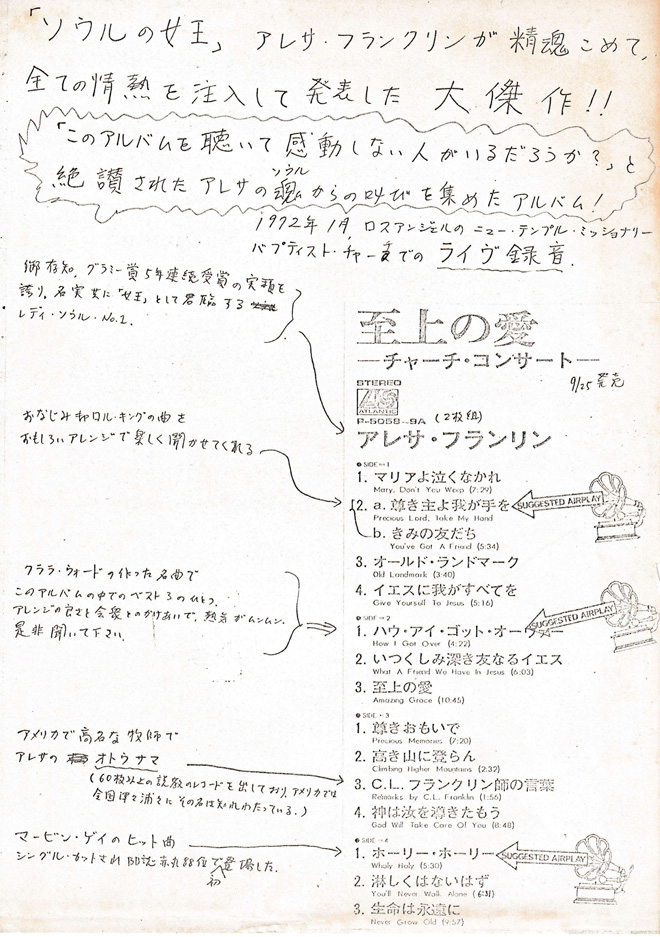 「ソウルの女王」 アレサ・フランクリンが 精魂 こめて、
全ての情熱を注入して発表した 大傑作!!
「このアルバムを聴いて感動しない人がいるだろうか?」と
絶讃されたアレサの魂からの叫びを集めたアルバム!
ソウル
1972年1月,ロスアンジェルの ニュー・テンプル・ミッショナリー
バプティスト・チャーチでの ライヴ録音.
御存知、グラミー賞5年連続受賞の実積を
誇り、名実共に「女王」として君臨する
レディ・ソウル・No.1.
至上の愛
―チャーチ・コンサート―
9/25発売
STEREO
ATLANTIC
P-5058~9A (2枚組)
アレサ・フランリン
おなじみキャロル・キングの曲を
おもしろいアレンジで楽しく聞かせてくれる
SIDE-1
1. マリアよ泣くなかれ
Mary, Don't You Weep (7:29)
2. a. 尊き主よ我が手を
Precious Lord, Take My Hand
SUGGESTED AIRPLAY
b. きみの友だち
You've Got A Friend (5:34)
3. オールド・ランドマーク
Old Landmark (3:40)
4. イエスに我がすべてを
Give Yourself To Jesus (5:16)
クララ・ウォードの作った名曲で
このアルバムの中でのベスト3のひとつ.
アレンジの良さと会衆とのかけあいで、熱気がムンムン.
是非聞いて下さい.
SIDE-2
1. ハウ・アイ・ゴット・オーヴァー
How I Got Over (4:22)
SUGGESTED AIRPLAY
2. いつくしみ深き友なるイエス
What A Friend We Have In Jesus (6:03)
3. 至上の愛
Amazing Grace (10:45)
アメリカで高名な牧師で
アレサの オトウサマ
(60枚以上の説教のレコードを出しており、アメリカでは
全国津々浦々にその名は知れわたっている.)
SIDE-3
1. 尊きおもいで
Precious Memories (7:20)
2. 高き山に登らん
Climbing Higher Mountains (2:32)
3. C.L. フランクリン師の言葉
Remarks by C.L. Franklin (1:56)
4. 神は汝を導きたもう
God Will Take Care Of You (8:48)
マービン・ゲイのヒット曲
シングル・カットされBB誌赤丸88位で初登場した.
SIDE-4
1. ホーリー・ホーリー
Wholy Holy (5:30)
SUGGESTED AIRPLAY
2. 淋しくはないはず
You'll Never Walk Alone (6:31)
3. 生命は永遠に
Never Grow Old (9:57)